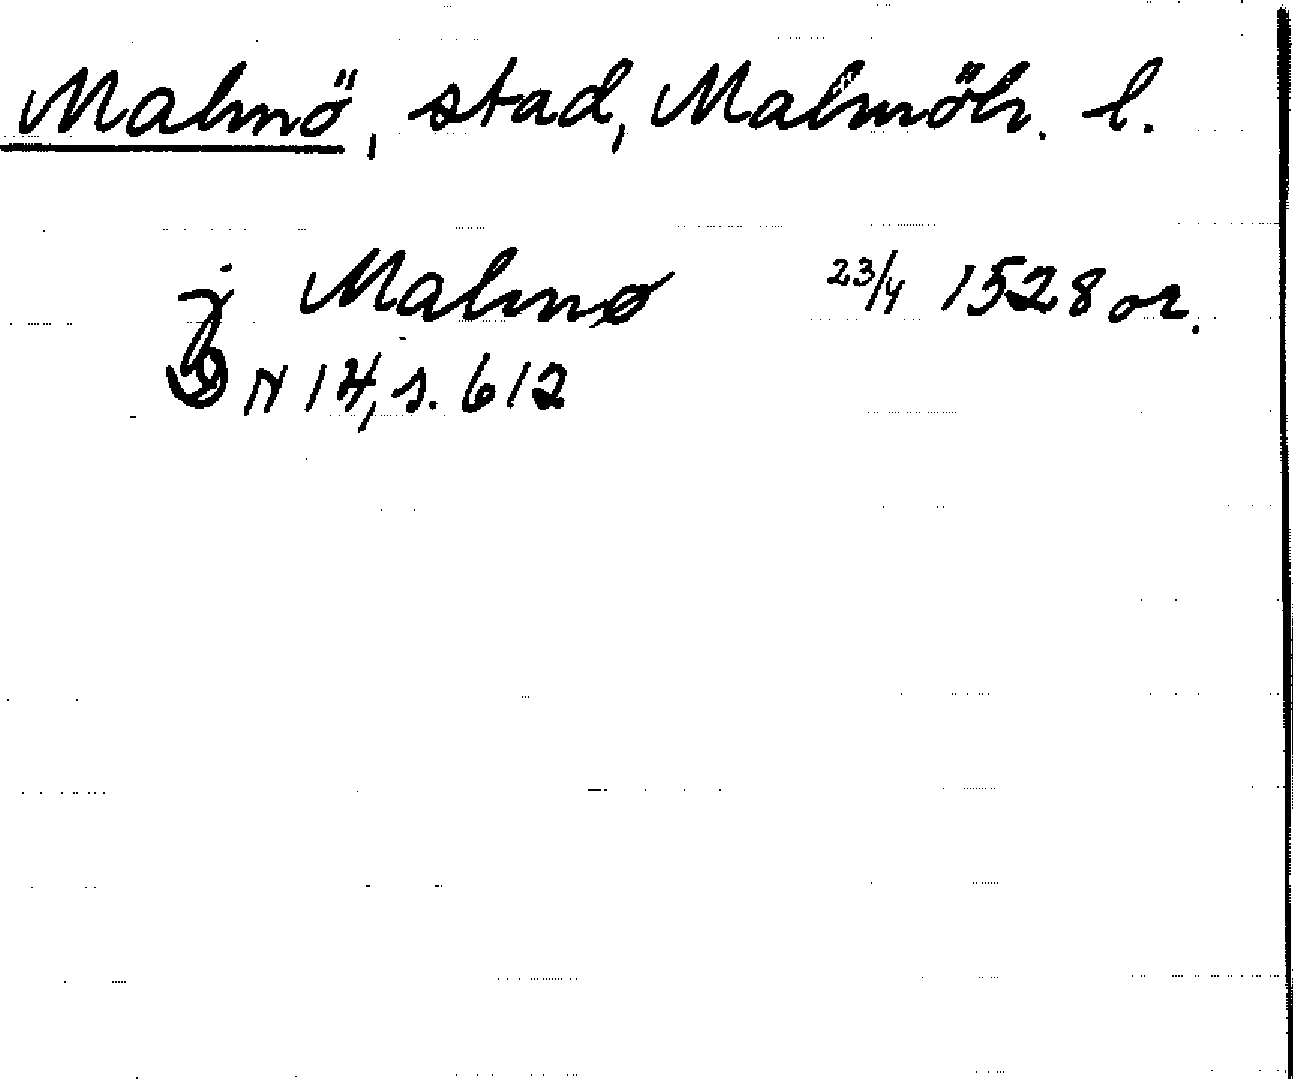 Malmö, stad, Malmöh. l.
j Malmø 23/4 1528 or.
DN 14, s. 612